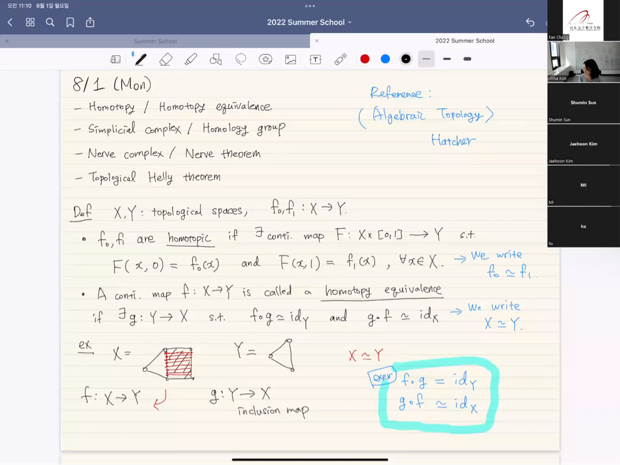 오전 11:10 8월 1일 월요일
2022 Summer School
Summer School
2022 Summer School
8/1 (Mon)
- Homotopy / Homotopy equivalence
- Simplicial complex / Homology group
- Nerve complex / Nerve theorem
- Topological Helly theorem
Reference :
(Algebraic Topology)
Hatcher
Def X, Y : topological spaces, f₀, f₁ : X → Y.
• f₀, f₁ are homotopic if ∃ conti. map F : X × [0,1] → Y s.t
F(x, 0) = f₀(x) and F(x, 1) = f₁(x), ∀x∈X.
→ We write
f₀ ≃ f₁.
• A conti. map f : X → Y is called a homotopy equivalence
if ∃ g : Y → X s.t. f∘g ≃ id_Y and g∘f ≃ id_X
→ We write
X ≃ Y.
ex X = Y = X ≃ Y
f : X → Y g : Y → X
inclusion map
exer f∘g = id_Y
g∘f ≃ id_X
Shumin Sun
Shumin Sun
Jaehoon Kim
Jaehoon Kim
MI
MI